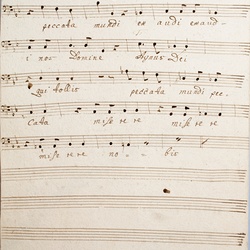 peccata mundi ex audi exaud-
i nos Domine Agnus Dei
qui tollis peccata mundi pec-
cata miserere miserere
miserere no - - bis